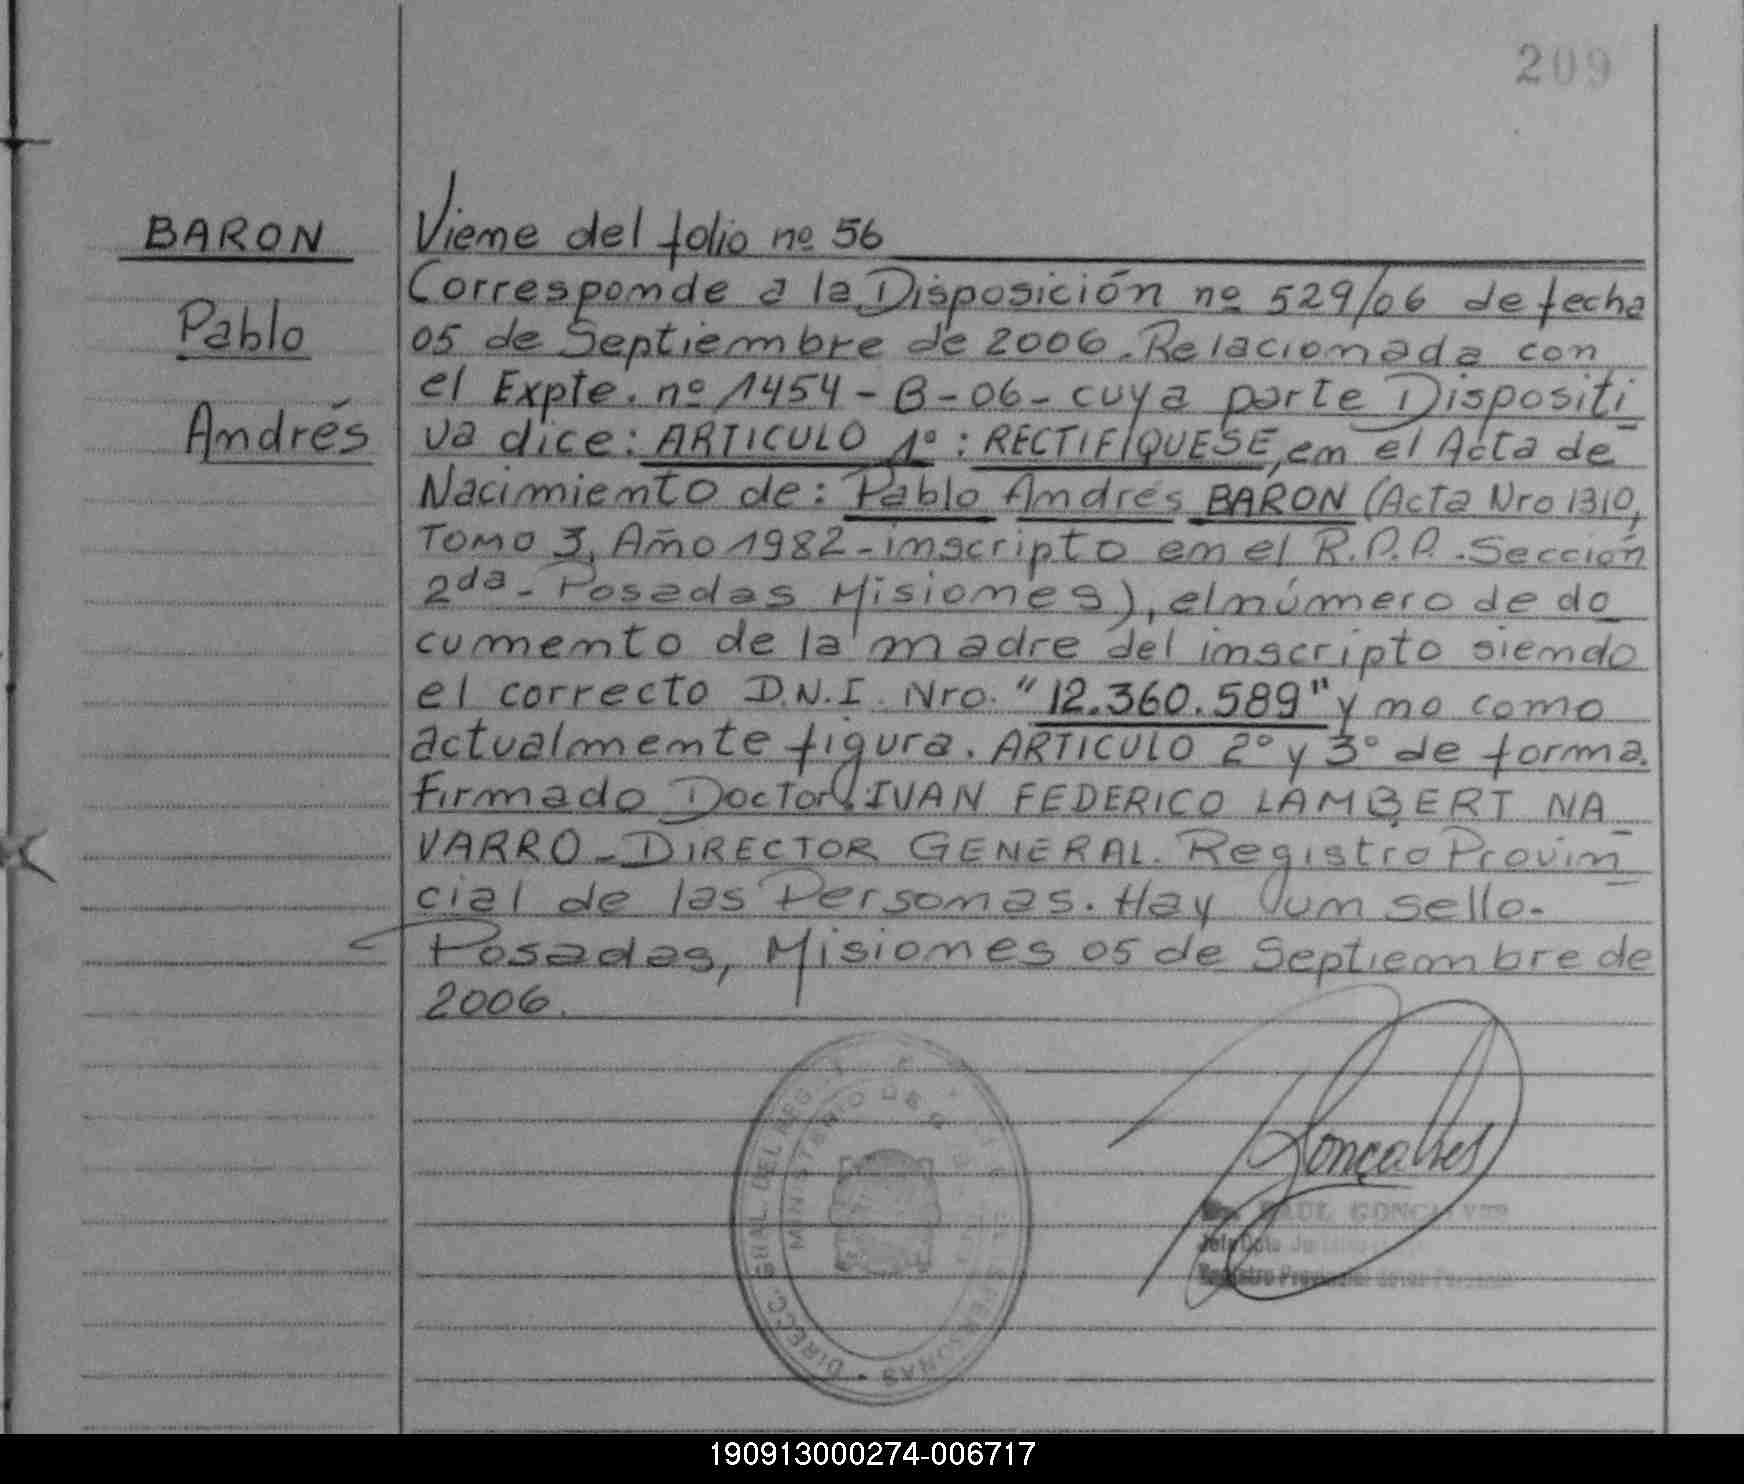 209
BARON
Pablo
Andrés
Viene del folio nº 56
Corresponde a la Disposición nº 529/06 de fecha
05 de Septiembre de 2006. Relacionada con
el Expte. nº 1454-B-06- cuya parte Dispositi
va dice: ARTICULO 1º: RECTIFIQUESE, en el Acta de
Nacimiento de: Pablo Andrés BARON (Acta Nro 1310,
Tomo 3, Año 1982-inscripto en el R.P.P. Sección
2da- Posadas Misiones), el número de do
cumento de la madre del inscripto siendo
el correcto D.N.I. Nro. "12.360.589" y no como
actualmente figura. ARTICULO 2º y 3º de forma.
Firmado Doctor IVAN FEDERICO LAMBERT NA
VARRO-DIRECTOR GENERAL. Registro Provin
cial de las Personas. Hay un sello-
Posadas, Misiones 05 de Septiembre de
2006.
DIRECC. GRAL. DEL REG. PERSONAS
MINISTERIO DE
Gonçalves
RAUL GONCALVES
Jefe Dpto
Registro Provincial de las Personas
190913000274-006717